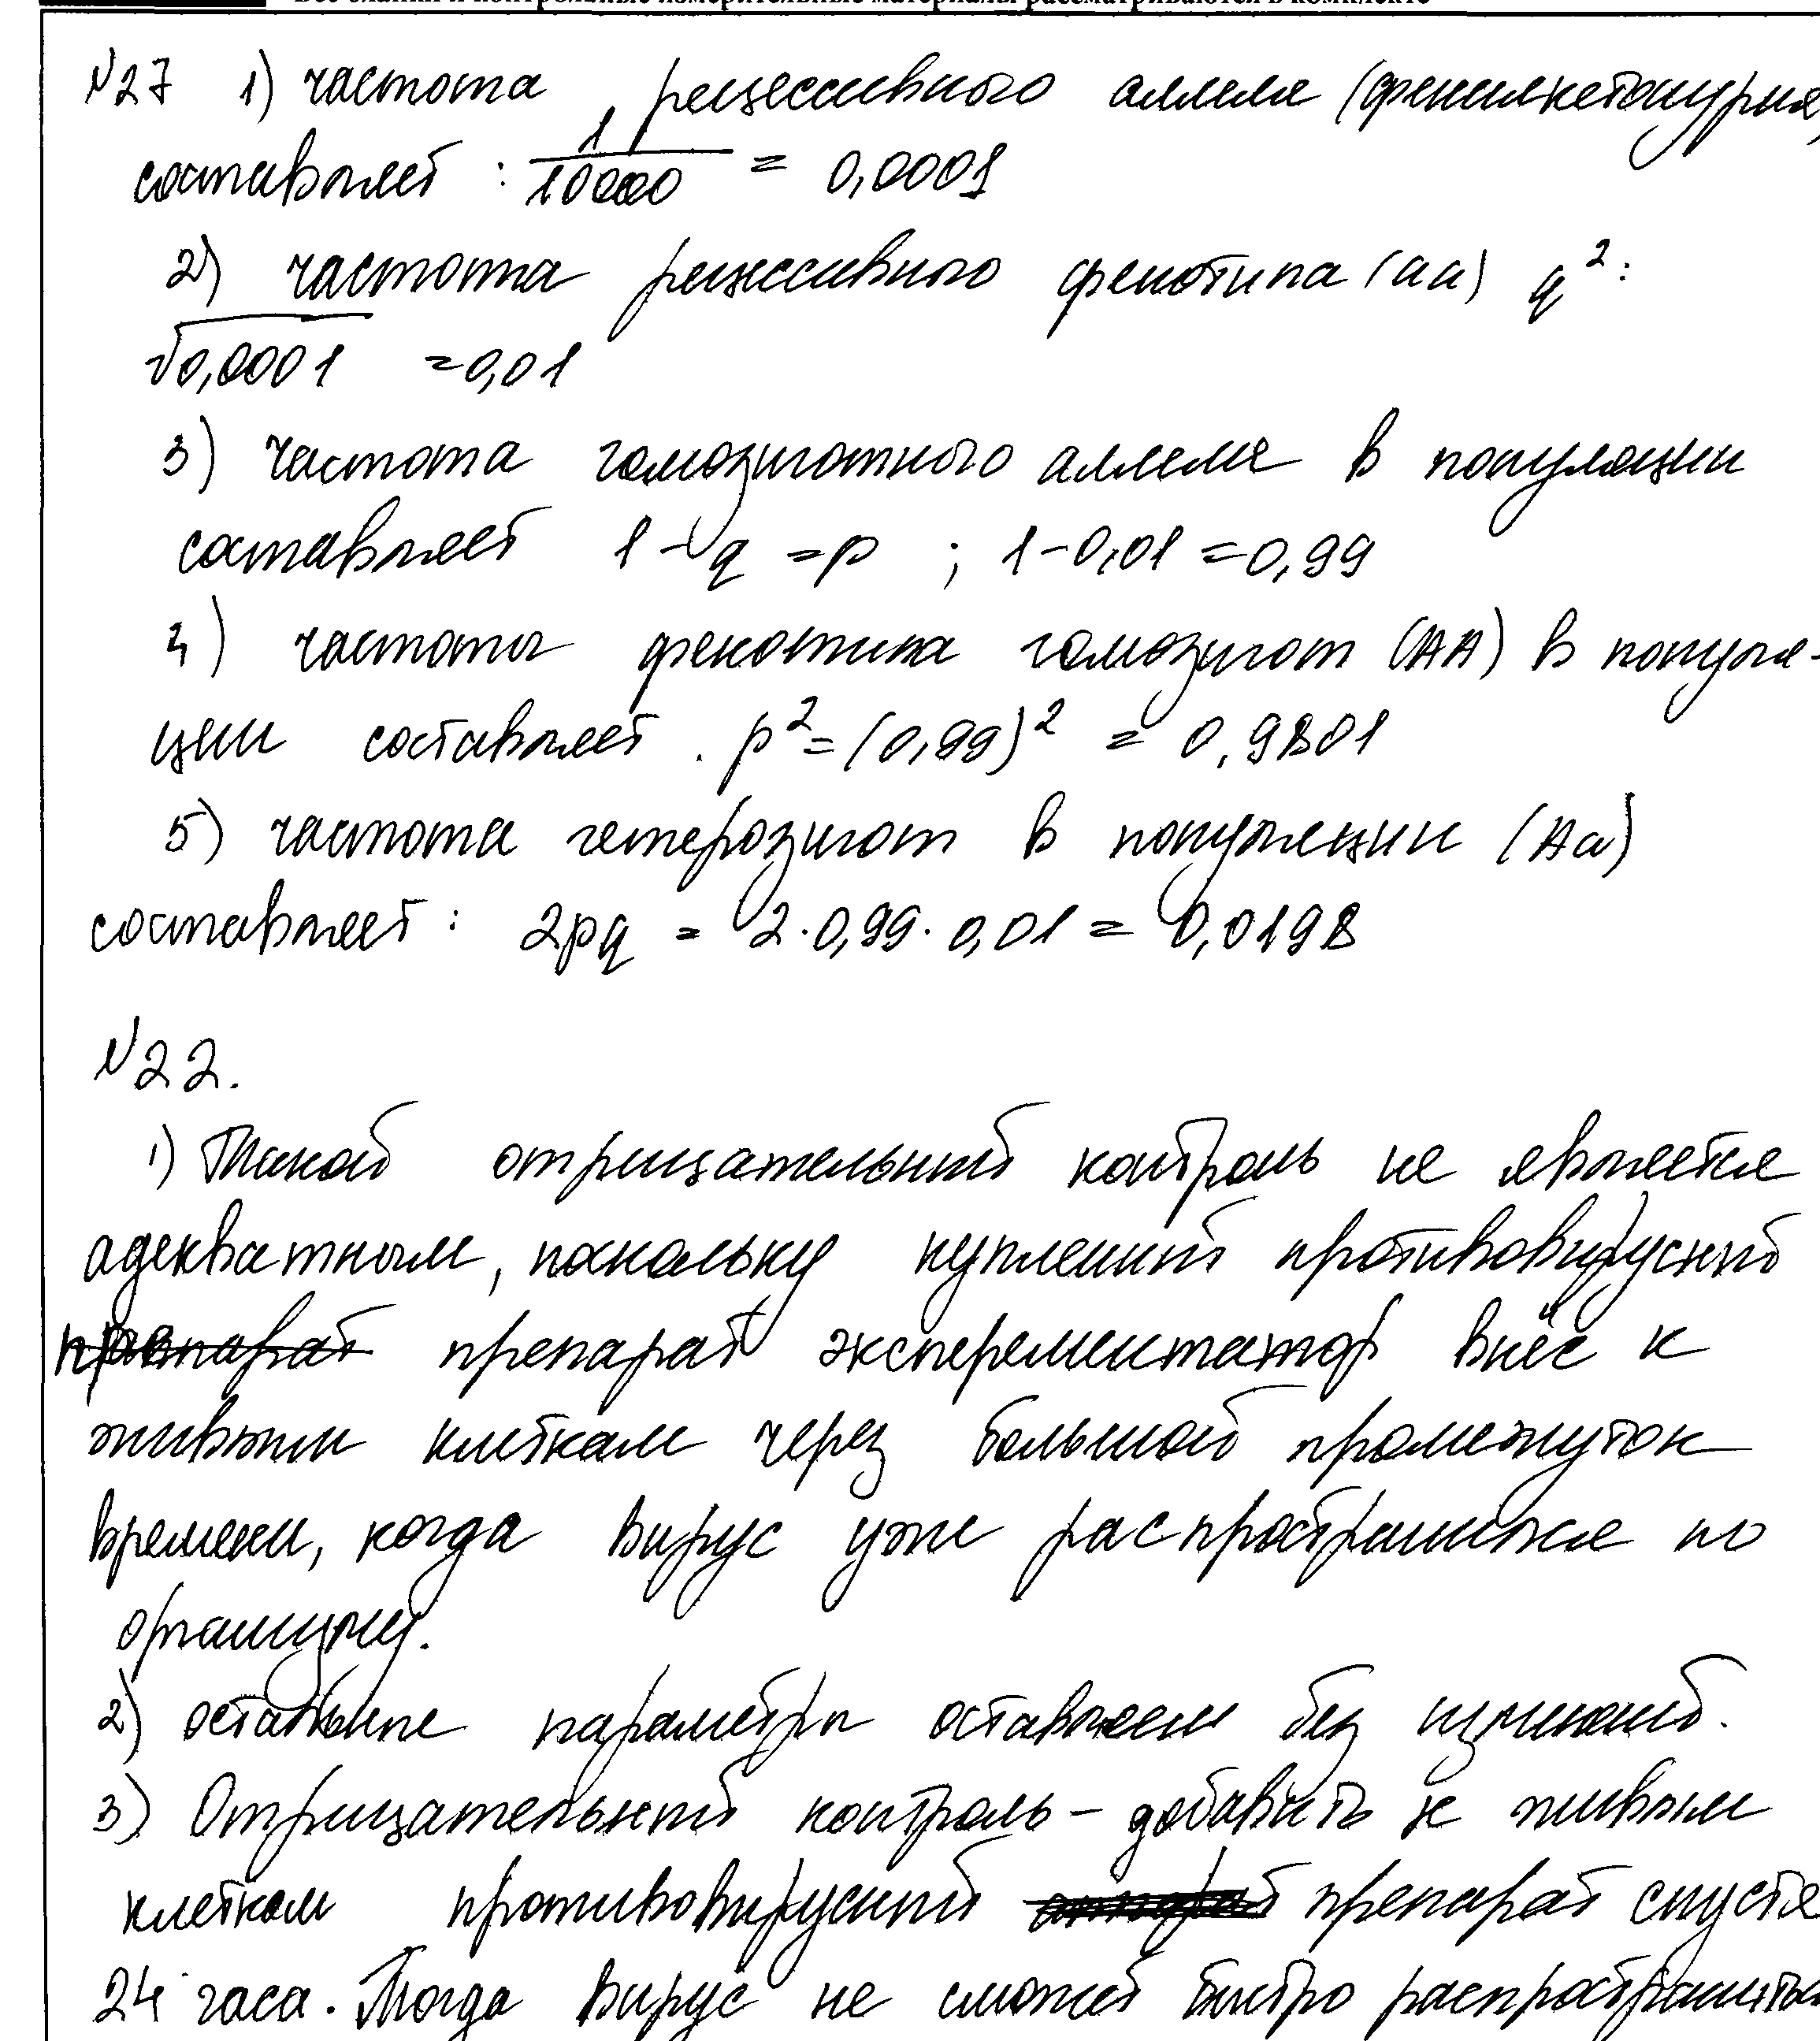 Все бланки и контрольные измерительные материалы рассматриваются в комплекте
№27 1) частота рецессивного аллеля (фенилкетонурия)
составляет : 1/10000 = 0,0001
2) частота рецессивного фенотипа (аа) q²:
√0,0001 = 0,01
3) частота гомозиготного аллеля в популяции
составляет 1 - q = p ; 1-0,01 = 0,99
4) частоты фенотипа гомозигот (АА) в популя-
ции составляет . p² = (0,99)² = 0,9801
5) частота гетерозигот в популяции (Аа)
составляет : 2pq = 2·0,99·0,01 = 0,0198
№22.
1) Такой отрицательный контроль не является
адекватным, поскольку купленный противовирусный
препарат эксперементатор внёс к
живым клеткам через большой промежуток
времени, когда вирус уже распространился по
организму.
2) остальные параметры оставляем без изменений.
3) Отрицательный контроль - добавить к живым
клеткам противовирусный препарат спустя
24 часа. Тогда вирус не сможет быстро распространиться